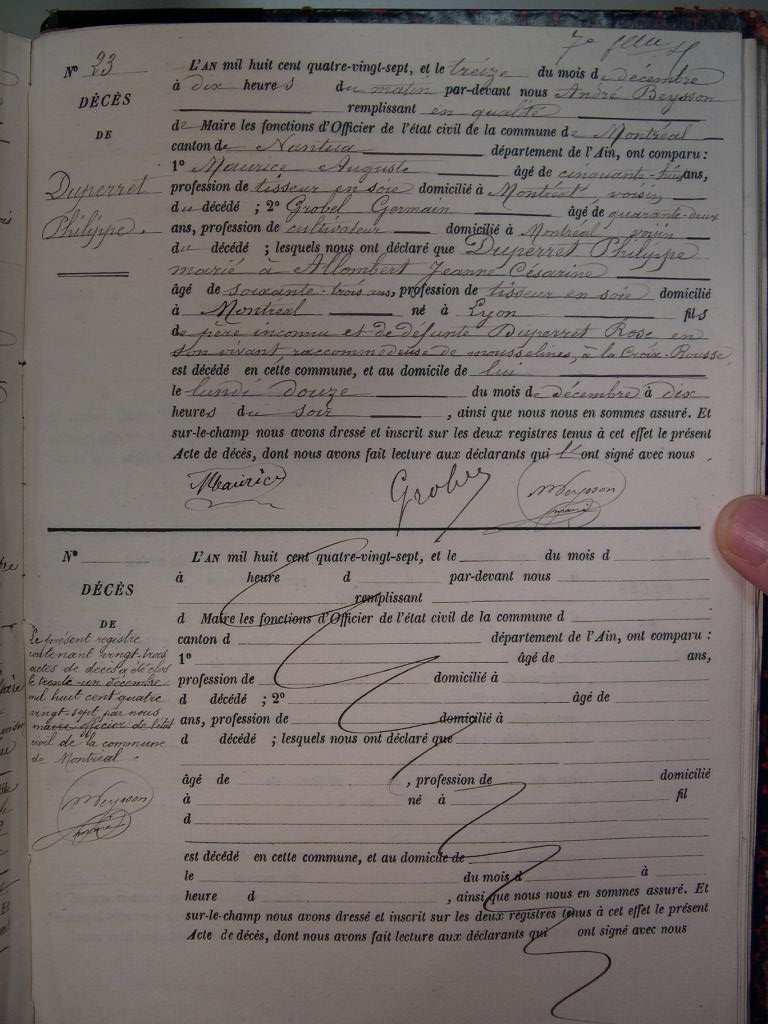 7e feuillet
N° 23
DÉCÈS
DE
Duperret
Philippe.
L'AN mil huit cent quatre-vingt-sept, et le treize du mois de décembre
à dix heures du matin par-devant nous André Beysson
remplissant en qualité
de Maire les fonctions d'Officier de l'état civil de la commune de Montréal
canton de Nantua département de l'Ain, ont comparu :
1° Maurice Auguste âgé de cinquante-huit ans,
profession de tisseur en soie domicilié à Montréal, voisin
du décédé ; 2° Grobel Germain âgé de quarante-deux
ans, profession de cultivateur domicilié à Montréal voisin
du décédé ; lesquels nous ont déclaré que Duperret Philippe
marié à Allombert Jeanne Césarine
âgé de soixante-trois ans, profession de tisseur en soie domicilié
à Montréal né à Lyon fils
de père inconnu et de défunte Duperret Rose en
son vivant, raccommodeuse de mousselines, à la Croix-Rousse,
est décédé en cette commune, et au domicile de lui
le lundi douze du mois de décembre à dix
heures du soir , ainsi que nous nous en sommes assuré. Et
sur-le-champ nous avons dressé et inscrit sur les deux registres tenus à cet effet le présent
Acte de décès, dont nous avons fait lecture aux déclarants qui l'ont signé avec nous .
Maurice Grobel Beysson
maire
N°
DÉCÈS
DE
Le présent registre
contenant vingt-trois
actes de décès a été clos
le trente-un décembre
mil huit cent quatre
vingt-sept par nous
maire officier de l'état
civil de la commune
de Montréal.
Beysson
maire
L'AN mil huit cent quatre-vingt-sept, et le du mois d
à heure d par-devant nous
remplissant
d Maire les fonctions d'Officier de l'état civil de la commune d
canton d département de l'Ain, ont comparu :
1° âgé de ans,
profession de domicilié à
d décédé ; 2° âgé de
ans, profession de domicilié à
d décédé ; lesquels nous ont déclaré que
âgé de , profession de domicilié
à né à fil
d
est décédé en cette commune, et au domicile de
le du mois d à
heure d , ainsi que nous nous en sommes assuré. Et
sur-le-champ nous avons dressé et inscrit sur les deux registres tenus à cet effet le présent
Acte de décès, dont nous avons fait lecture aux déclarants qui ont signé avec nous